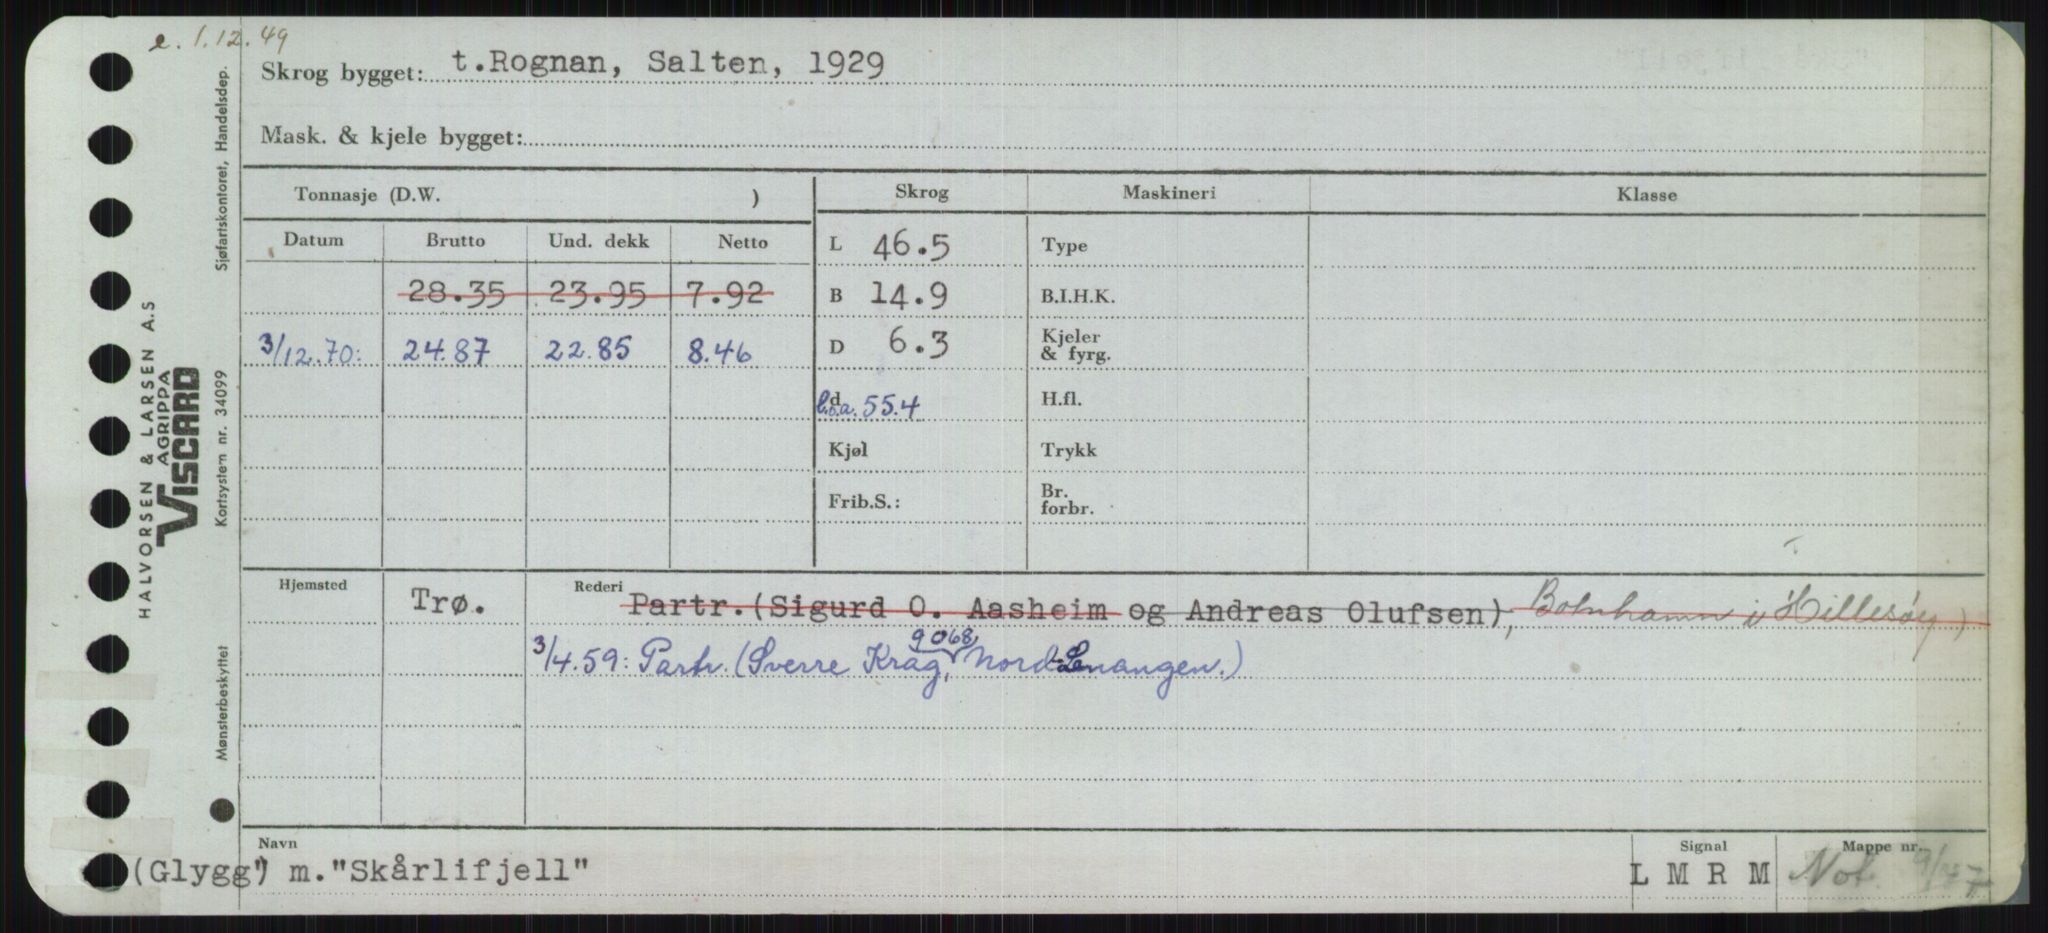 e. 1.12.49
Skrog bygget: t.Rognan, Salten, 1929
Mask. & kjele bygget:
Tonnasje (D.W. )
Skrog
Maskineri
Klasse
Datum
Brutto
Und. dekk
Netto
L 46.5
Type
28.35 23.95 7.92
B 14.9
B.I.H.K.
3/12.70: 24.87 22.85 8.46
D 6.3
Kjeler
& fyrg.
d
l.o.a. 55.4
H.fl.
Kjøl
Trykk
Frib.S.:
Br.
forbr.
Hjemsted
Trø.
Rederi
Partr.(Sigurd O. Aasheim og Andreas Olufsen), Botnhamn i Hillesøy)
9068
3/4.59: Partr. (Sverre Krag, Nord-Lenangen.)
Navn
(Glygg") m."Skårlifjell"
Signal
L M R M
Mappe nr.
Not. 9/47
HALVORSEN & LARSEN A.S
AGRIPPA
VISCARD
Sjøfartskontoret, Handelsdep.
Kortsystem nr. 34099
Mønsterbeskyttet